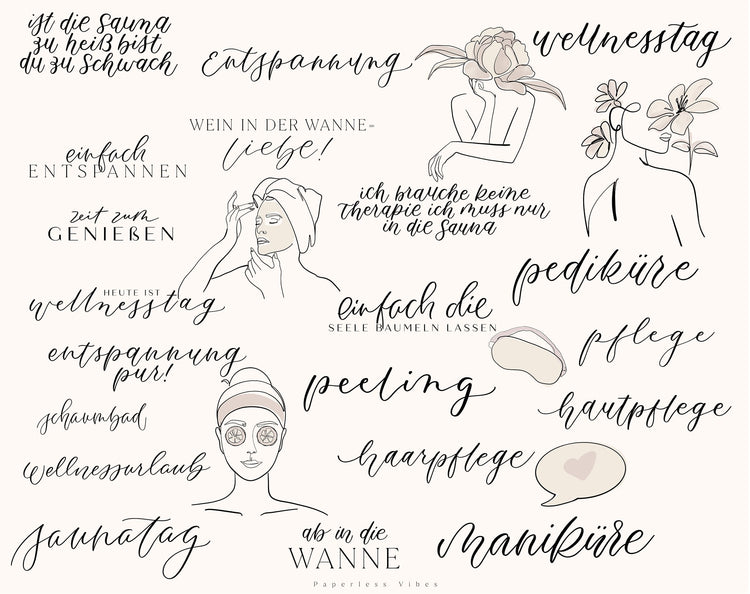 ist die Sauna
zu heiß bist
du zu Schwach
Entspannung
wellnesstag
WEIN IN DER WANNE-
liebe!
einfach
ENTSPANNEN
ich brauche keine
Therapie ich muss nur
in die Sauna
zeit zum
GENIEßEN
pediküre
HEUTE IST
wellnesstag
einfach die
SEELE BAUMELN LASSEN
pflege
entspannung
pur!
peeling
hautpflege
schaumbad
haarpflege
Wellnessurlaub
saunatag
ab in die
WANNE
maniküre
Paperless Vibes